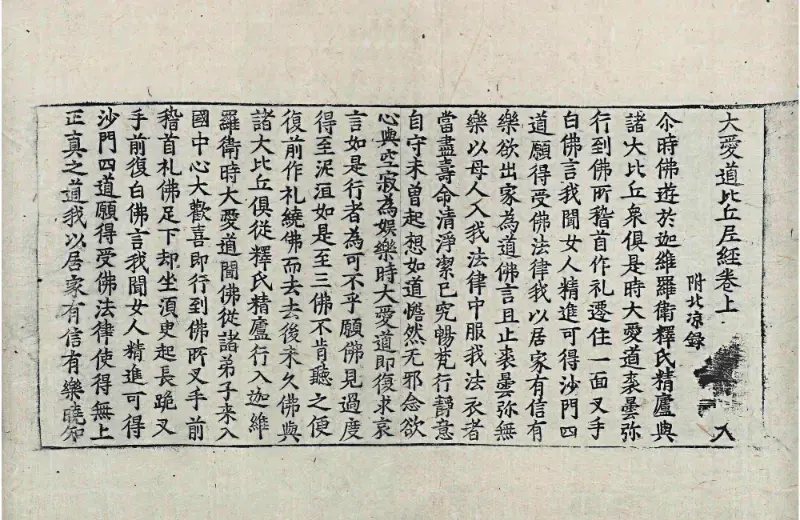 大愛道比丘尼經卷上
入
附北凉録
尒時佛遊於迦維羅衛釋氏精廬與
諸大比丘衆俱是時大愛道裘曇弥
行到佛所稽首作礼遷住一面叉手
白佛言我聞女人精進可得沙門四
道願得受佛法律我以居家有信有
樂欲出家為道佛言且止裘曇弥無
樂以母人入我法律中服我法衣者
當盡壽命清淨潔已究暢梵行靜意
自守未曽起想如道憺然无邪念欲
心與空寂為娛樂時大愛道即復求哀
言如是行者為可不乎願佛見過度
得至泥洹如是至三佛不肯聽之便
復前作礼繞佛而去去後未久佛與
諸大比丘俱從釋氏精廬行入迦維
羅衛時大愛道聞佛從諸弟子來入
國中心大歡喜即行到佛所叉手前
稽首礼佛足下却坐湏臾起長跪叉
手前復白佛言我聞女人精進可得
沙門四道願得受佛法律使得無上
正真之道我以居家有信有樂曉知